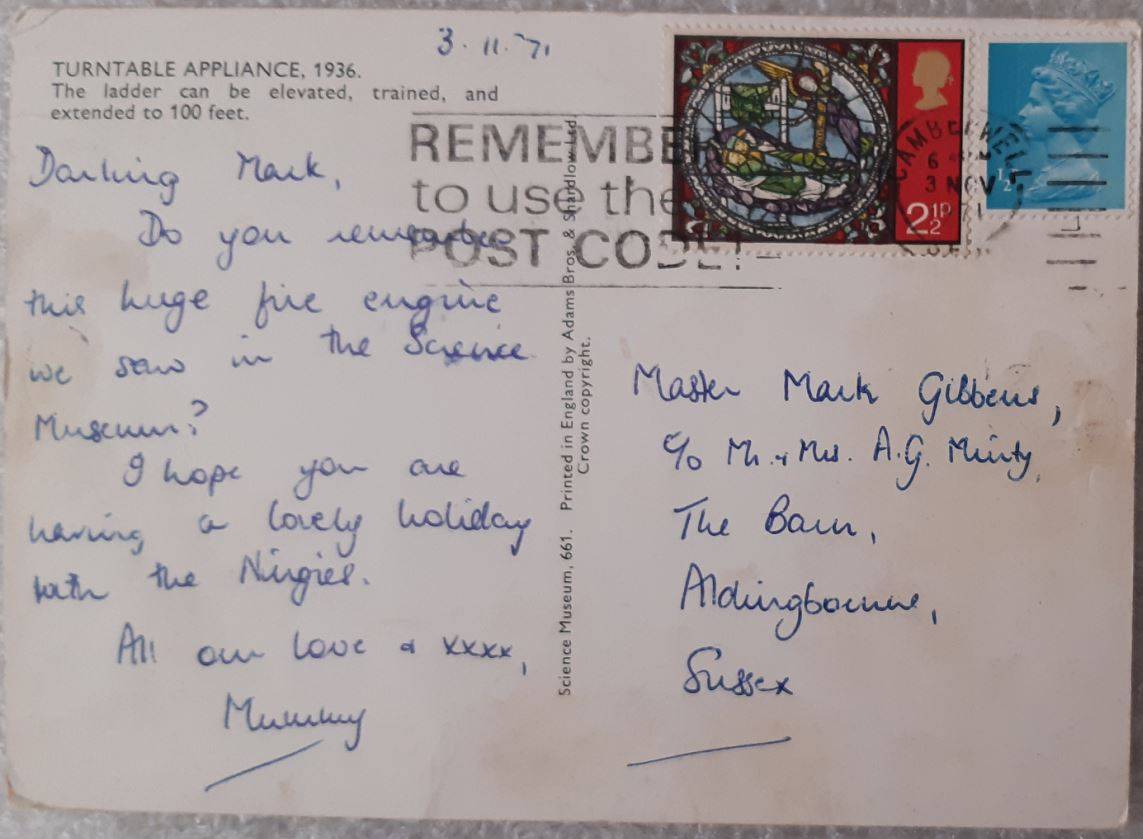 3.11.71
TURNTABLE APPLIANCE, 1936.
The ladder can be elevated, trained, and
extended to 100 feet.
Darling Mark,
Do you remember
this huge fire engine
we saw in the Science
Museum?
I hope you are
having a lovely holiday
with the Ningies.
All our love & xxxx,
Mummy
REMEMBER
to use the
POST CODE!
Science Museum, 661. Printed in England by Adams Bros. & Shardlow Ltd.
Crown copyright.
2½P
½
CAMBERWELL
6
3 NOV
71
S.E.
Master Mark Gibbens,
c/o Mr. & Mrs. A.G. Minty,
The Barn,
Aldingbourne,
Sussex